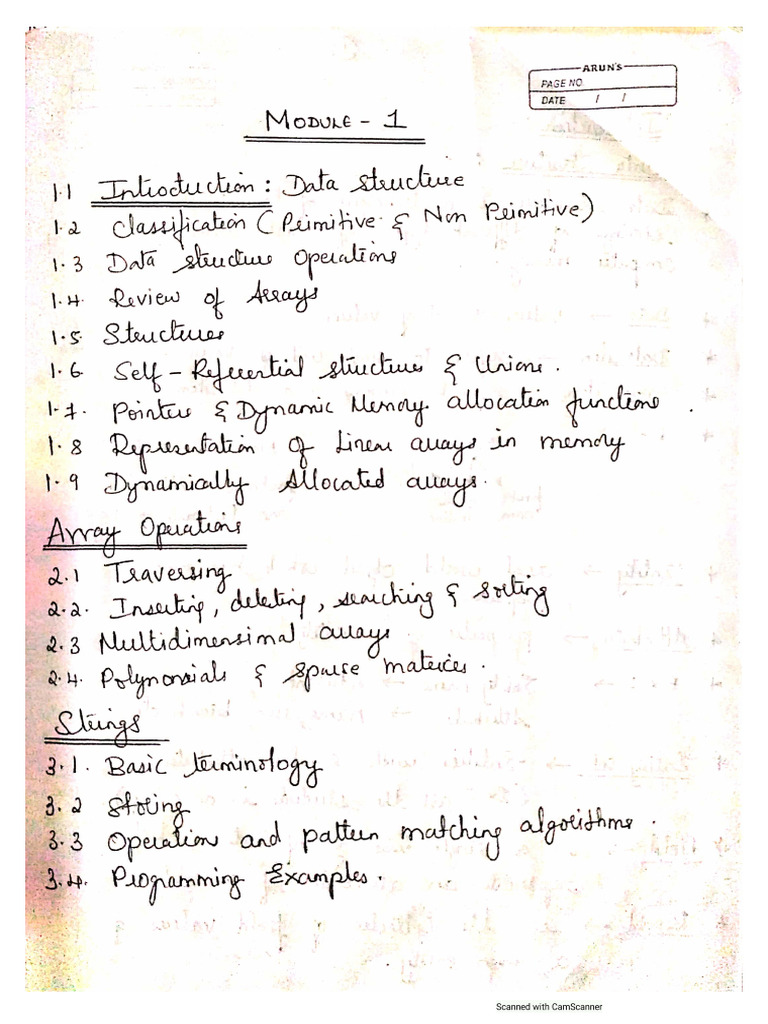 ARUN'S
PAGE NO.
DATE / /
MODULE - 1
1.1 Introduction : Data Structure
1.2 Classification (Primitive & Non Primitive)
1.3 Data structure Operations
1.4. Review of Arrays
1.5. Structures
1.6. Self-Referential structures & Unions.
1.7. Pointers & Dynamic Memory allocation functions.
1.8 Representation of Linear arrays in memory
1.9 Dynamically Allocated arrays.
Array Operations
2.1 Traversing
2.2. Inserting, deleting, searching & sorting
2.3 Multidimensional arrays
2.4. Polynomials & sparse matrices.
Strings
3.1. Basic terminology
3.2 Storing
3.3 Operation and pattern matching algorithms.
3.4. Programming Examples.
Scanned with CamScanner